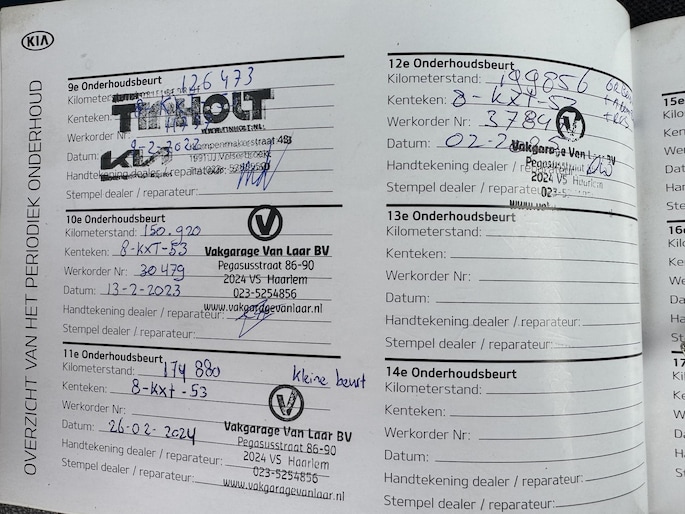 KIA
OVERZICHT VAN HET PERIODIEK ONDERHOUD
9e Onderhoudsbeurt
126473
Kenteken:
Werkorder Nr:
Datum: 9-2-2022
TINHOLT
KIA
WWW.TINHOLT.NL
Kampenmakerstraat
Handtekening dealer / reparateur:
Stempel dealer / reparateur:
10e Onderhoudsbeurt
Kilometerstand: 150.920
Kenteken: 8-KXT-53
Werkorder Nr: 30479
Datum: 13-2-2023
Handtekening dealer / reparateur:
Stempel dealer / reparateur:
Vakgarage Van Laar BV
Pegasusstraat 86-90
2024 VS Haarlem
023-5254856
www.vakgaragevanlaar.nl
11e Onderhoudsbeurt
Kilometerstand: 174 880
kleine beurt
Kenteken: 8-KXT-53
Werkorder Nr:
Datum: 26-02-2024
Handtekening dealer / reparateur:
Stempel dealer / reparateur:
Vakgarage Van Laar BV
Pegasusstraat 86-90
2024 VS Haarlem
023-5254856
www.vakgaragevanlaar.nl
12e Onderhoudsbeurt
Kilometerstand: 199856
Kenteken: 8-KXT-53
Werkorder Nr: 3784
Datum: 02-2
Handtekening dealer / reparateur:
Stempel dealer / reparateur:
Vakgarage Van Laar BV
Pegasusstraat
2024 VS Haarlem
023-5
13e Onderhoudsbeurt
Kilometerstand:
Kenteken:
Werkorder Nr:
Datum:
Handtekening dealer / reparateur:
Stempel dealer / reparateur:
14e Onderhoudsbeurt
Kilometerstand:
Kenteken:
Werkorder Nr:
Datum:
Handtekening dealer / reparateur:
Stempel dealer / reparateur: